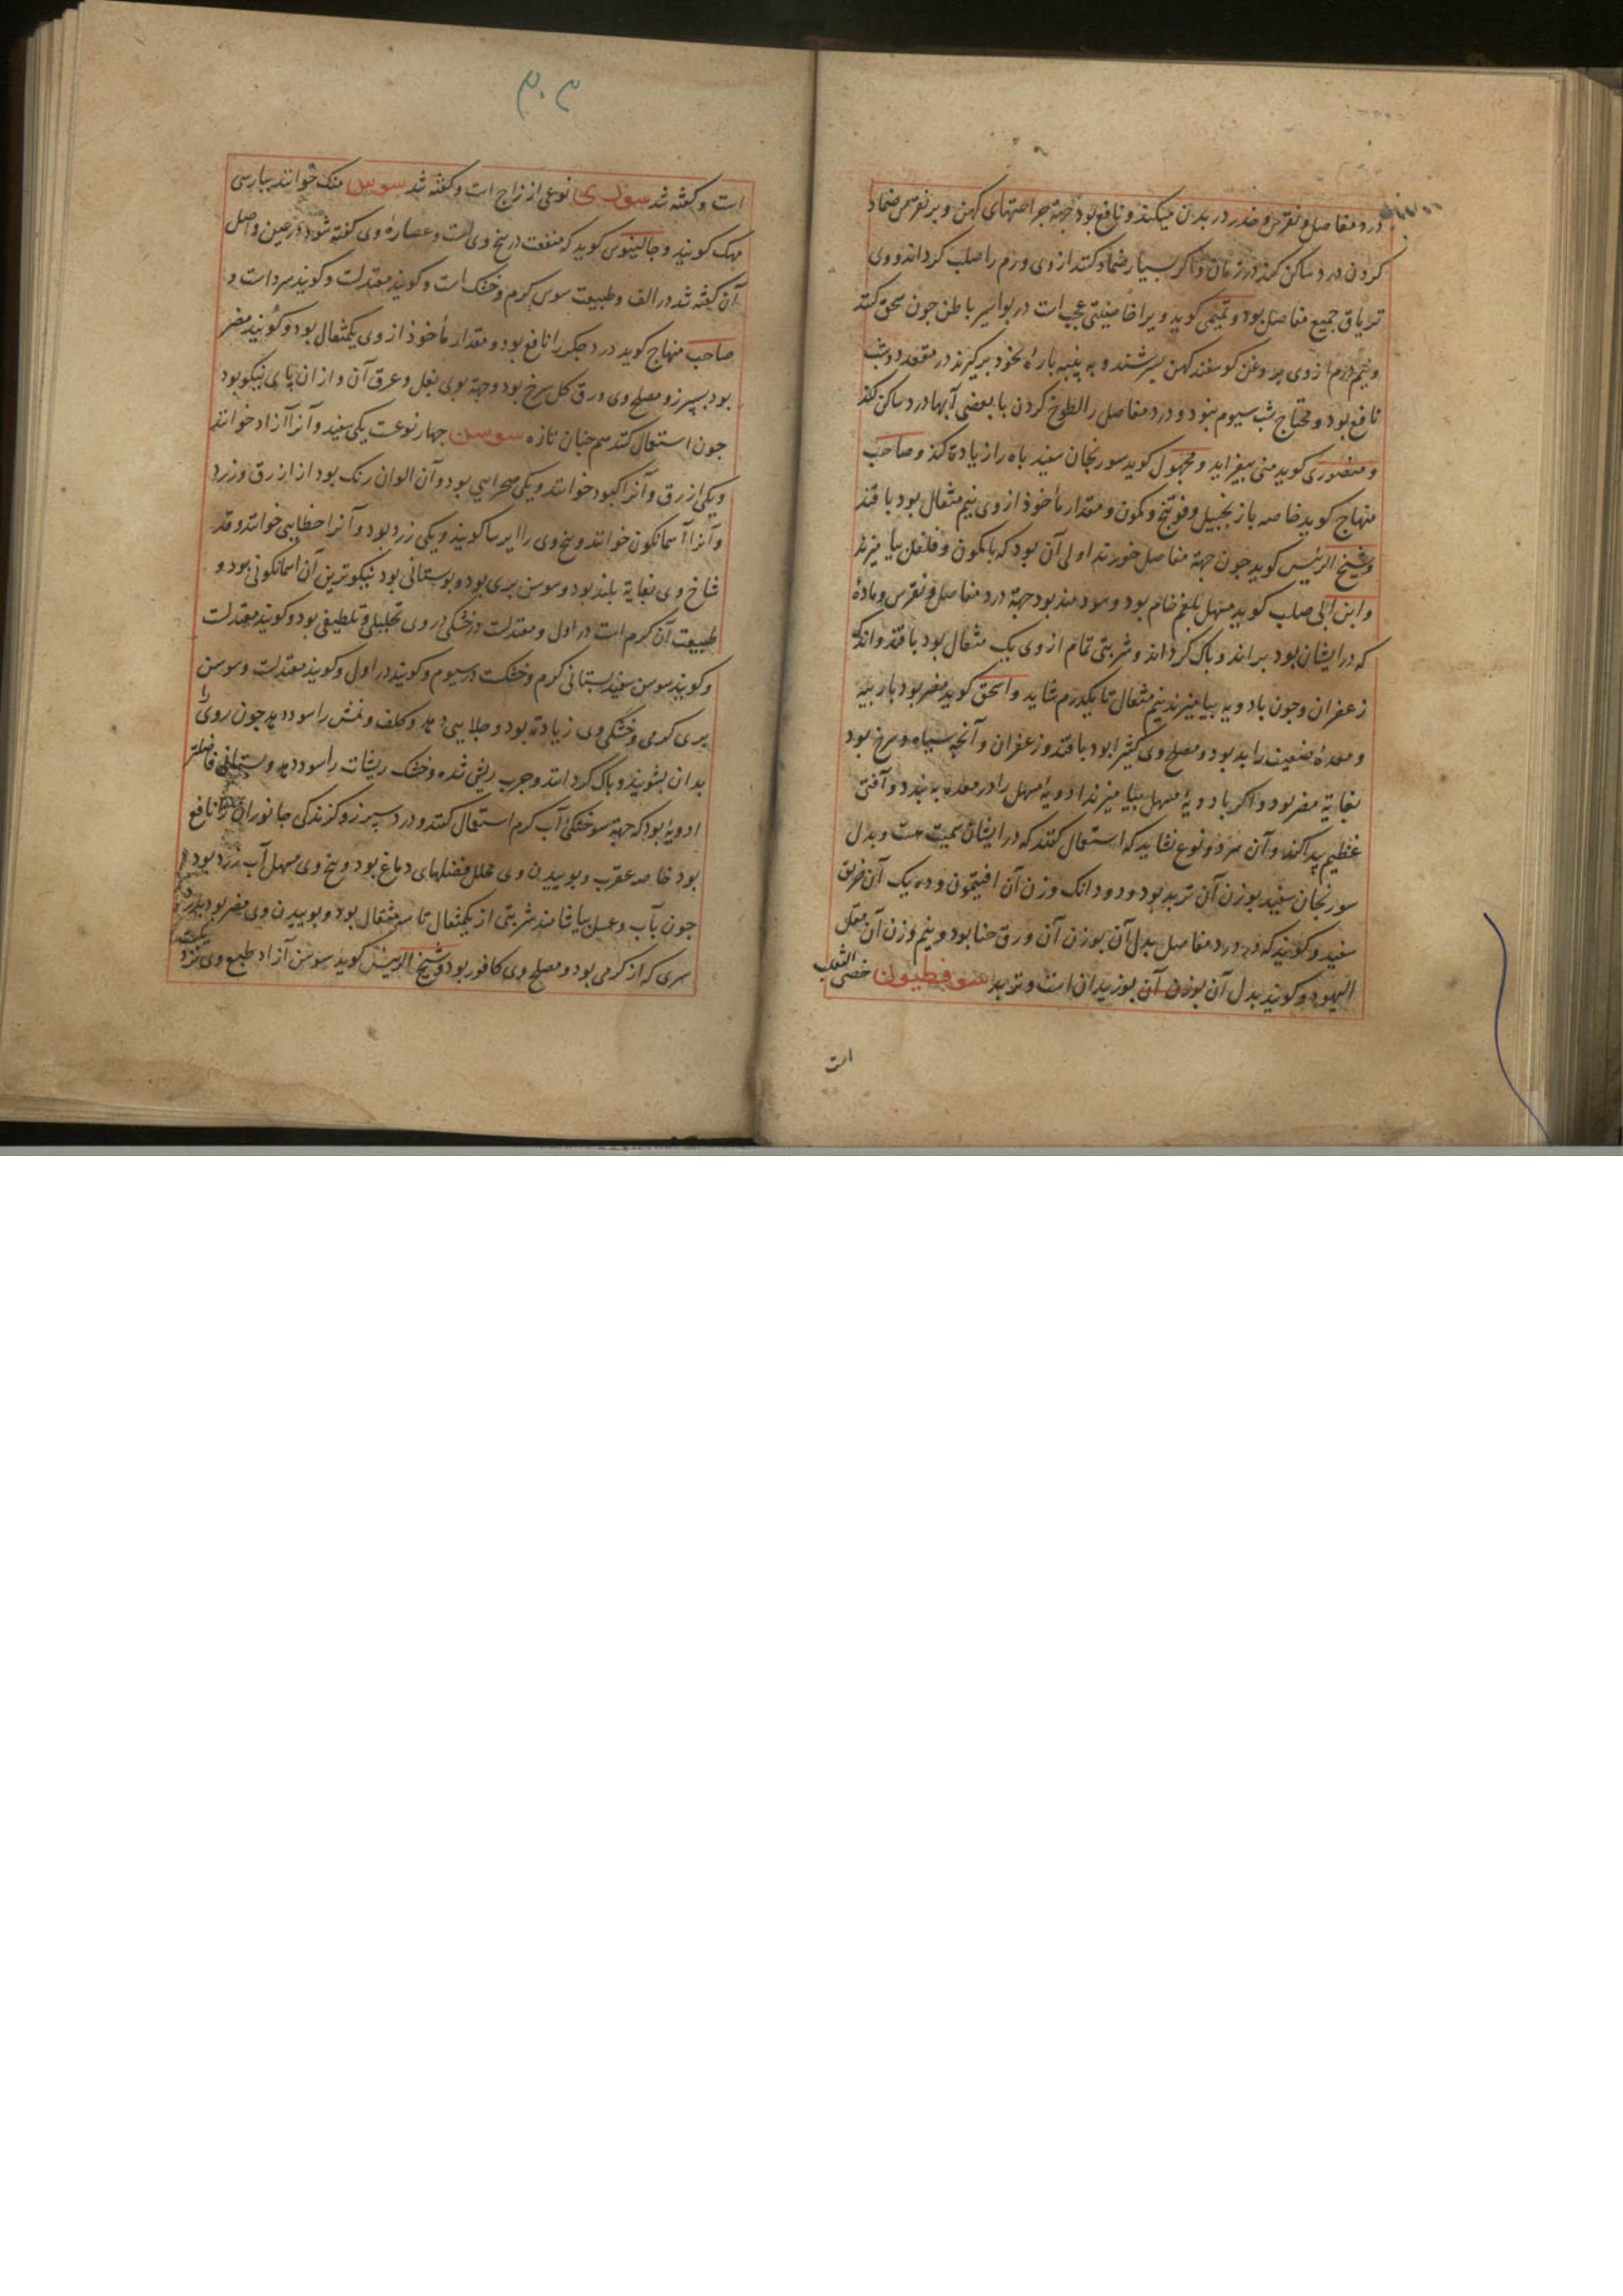 درد مفاصل و نقرس و خدر در بدن میکند و نافع بود جهة جراحتهای کهن و بر نقرس ضماد
کردن درد ساکن کند در زمان و اگر بسیار ضماد کنند از وی ورم را صلب کرداند و وی
تریاق جمیع مفاصل بود و تمیمی کوید ویرا خاصیتی عجب است در بواسیر باطن جون سحق کنند
و نیم درم از وی بروغن کوسفند کهن بسرشند و به پنبه پاره بخود برکیرند در مقعد دو شب
نافع بود و محتاج شب سیوم نبود و درد مفاصل را لطوخ کردن با بعضی آبها درد ساکن کند
و منصوری کوید منی بیفزاید و مجهول کوید سورنجان سفید باه را زیادة کند و صاحب
منهاج کوید خاصه با زنجبیل و فوتنج و کمون و مقدار مأخوذ از وی نیم مثقال بود با قند
و شیخ الرئیس کوید جون جهة مفاصل خورند اولی آن بود که با کمون و فلفل بیامیزند
و ابن ابی صلب کوید مسهل بلغم خام بود و سودمند بود جهة درد مفاصل و نقرس و مادۀ
که در ایشان بود براند و پاک کرداند و شربتی تمام از وی یک مثقال بود با قند و اندک
زعفران و جون با دویه بیامیزند نیم مثقال تا یکدرم شاید و اسحق کوید مضر بود باربیه
و معدۀ ضعیف را بد بود و مصلح وی کثیرا بود با قند و زعفران و آنچه سیاه و سرخ بود
بغایة مضر بود و اکر با دویۀ مسهل بیامیزند ادویۀ مسهل را در معده به بندد و آفتی
عظیم پیدا کند و آن هر دو نوع نشاید که استعمال کنند که در ایشان سمیت هست و بدل
سورنجان سفید بوزن آن تربد بود و دو دانک وزن آن افیتمون و ده یک آن خربق
سفید و کویند که در درد مفاصل بدل آن بوزن آن ورق حنا بود و نیم وزن آن مقل
الیهود و کویند بدل آن بوزن آن بوزیدان است و تربد سوفطیون خصی الثعلب
است
۳۰۳
است و کفته شد سوری نوعی از زاج است و کفته شد سوس منک خوانند بپارسی
مهک کویند و جالینوس کوید که منفعت در بیخ وی است و عصارۀ وی کفته شود در عین و اصل
آن کفته شد در الف و طبیعت سوس کرم و خشک است و کویند معتدلست و کویند سرد است و
صاحب منهاج کوید درد جکر را نافع بود و مقدار مأخوذ از وی یکمثقال بود و کویند مضر
بود بسپرز و مصلح وی ورق کل سرخ بود و جهة بوی بغل و عرق آن و از ان پای نیکو بود
جون استعمال کنند همچنان تازه سوسن جهار نوعست یکی سفید و آنرا آزاد خوانند
و یکی ازرق و آنرا کبود خوانند و یکی صحرایی بود و آن الوان رنک بود از ازرق و زرد
و آنرا آسمانکون خوانند و بیخ وی را ایرسا کویند و یکی زرد بود و آنرا خطایی خوانند و قد
شاخ وی بغایة بلند بود و سوسن بری بود و بوستانی بود نیکوترین آن اسمانکونی بود و
طبیعت آن کرم است در اول و معتدلست در خشکی در وی تحلیلی و تلطیفی بود و کویند معتدلست
و کویند سوسن سفید بستانی کرم و خشکست در سیوم و کویند در اول و کویند معتدلست و سوسن
بری کرمی و خشکی وی زیادة بود و جلایی دهد و کلف و نمش را سود دهد جون روی را
بدان بشویند و پاک کردانند و جرب ریش شده و خشک ریشات را سود دهد و بستانی فاضلتر
ادویۀ بود که جهة سوختکئ آب کرم استعمال کنند و درد سپرز و کزندکی جانوران را نافع
بود خاصه عقرب و بوییدن وی محلل فضلهای دماغ بود و بیخ وی مسهل آب زرد بود
جون بآب و عسل بیاشامند شربتی از یکمثقال تا سه مثقال بود و بوییدن وی مضر بود بدرد
سری که از کرمی بود و مصلح وی کافور بود و شیخ الرئیس کوید سوسن آزاد طبع وی نزد